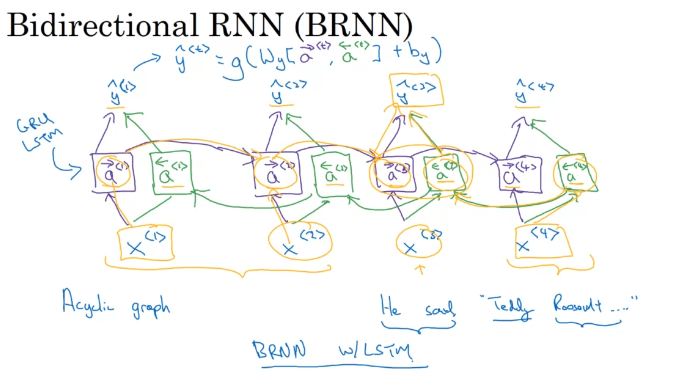 Bidirectional RNN (BRNN)
ŷ<t> = g(Wy[a→<t>, a←<t>] + by)
ŷ<1> ŷ<2> ŷ<3> ŷ<4>
GRU
LSTM
a→<1> a←<1> a→<2> a←<2> a→<3> a←<3> a→<4> a←<4>
x<1> x<2> x<3> x<4>
Acyclic graph
He said "Teddy Roosevelt ..."
BRNN w/LSTM